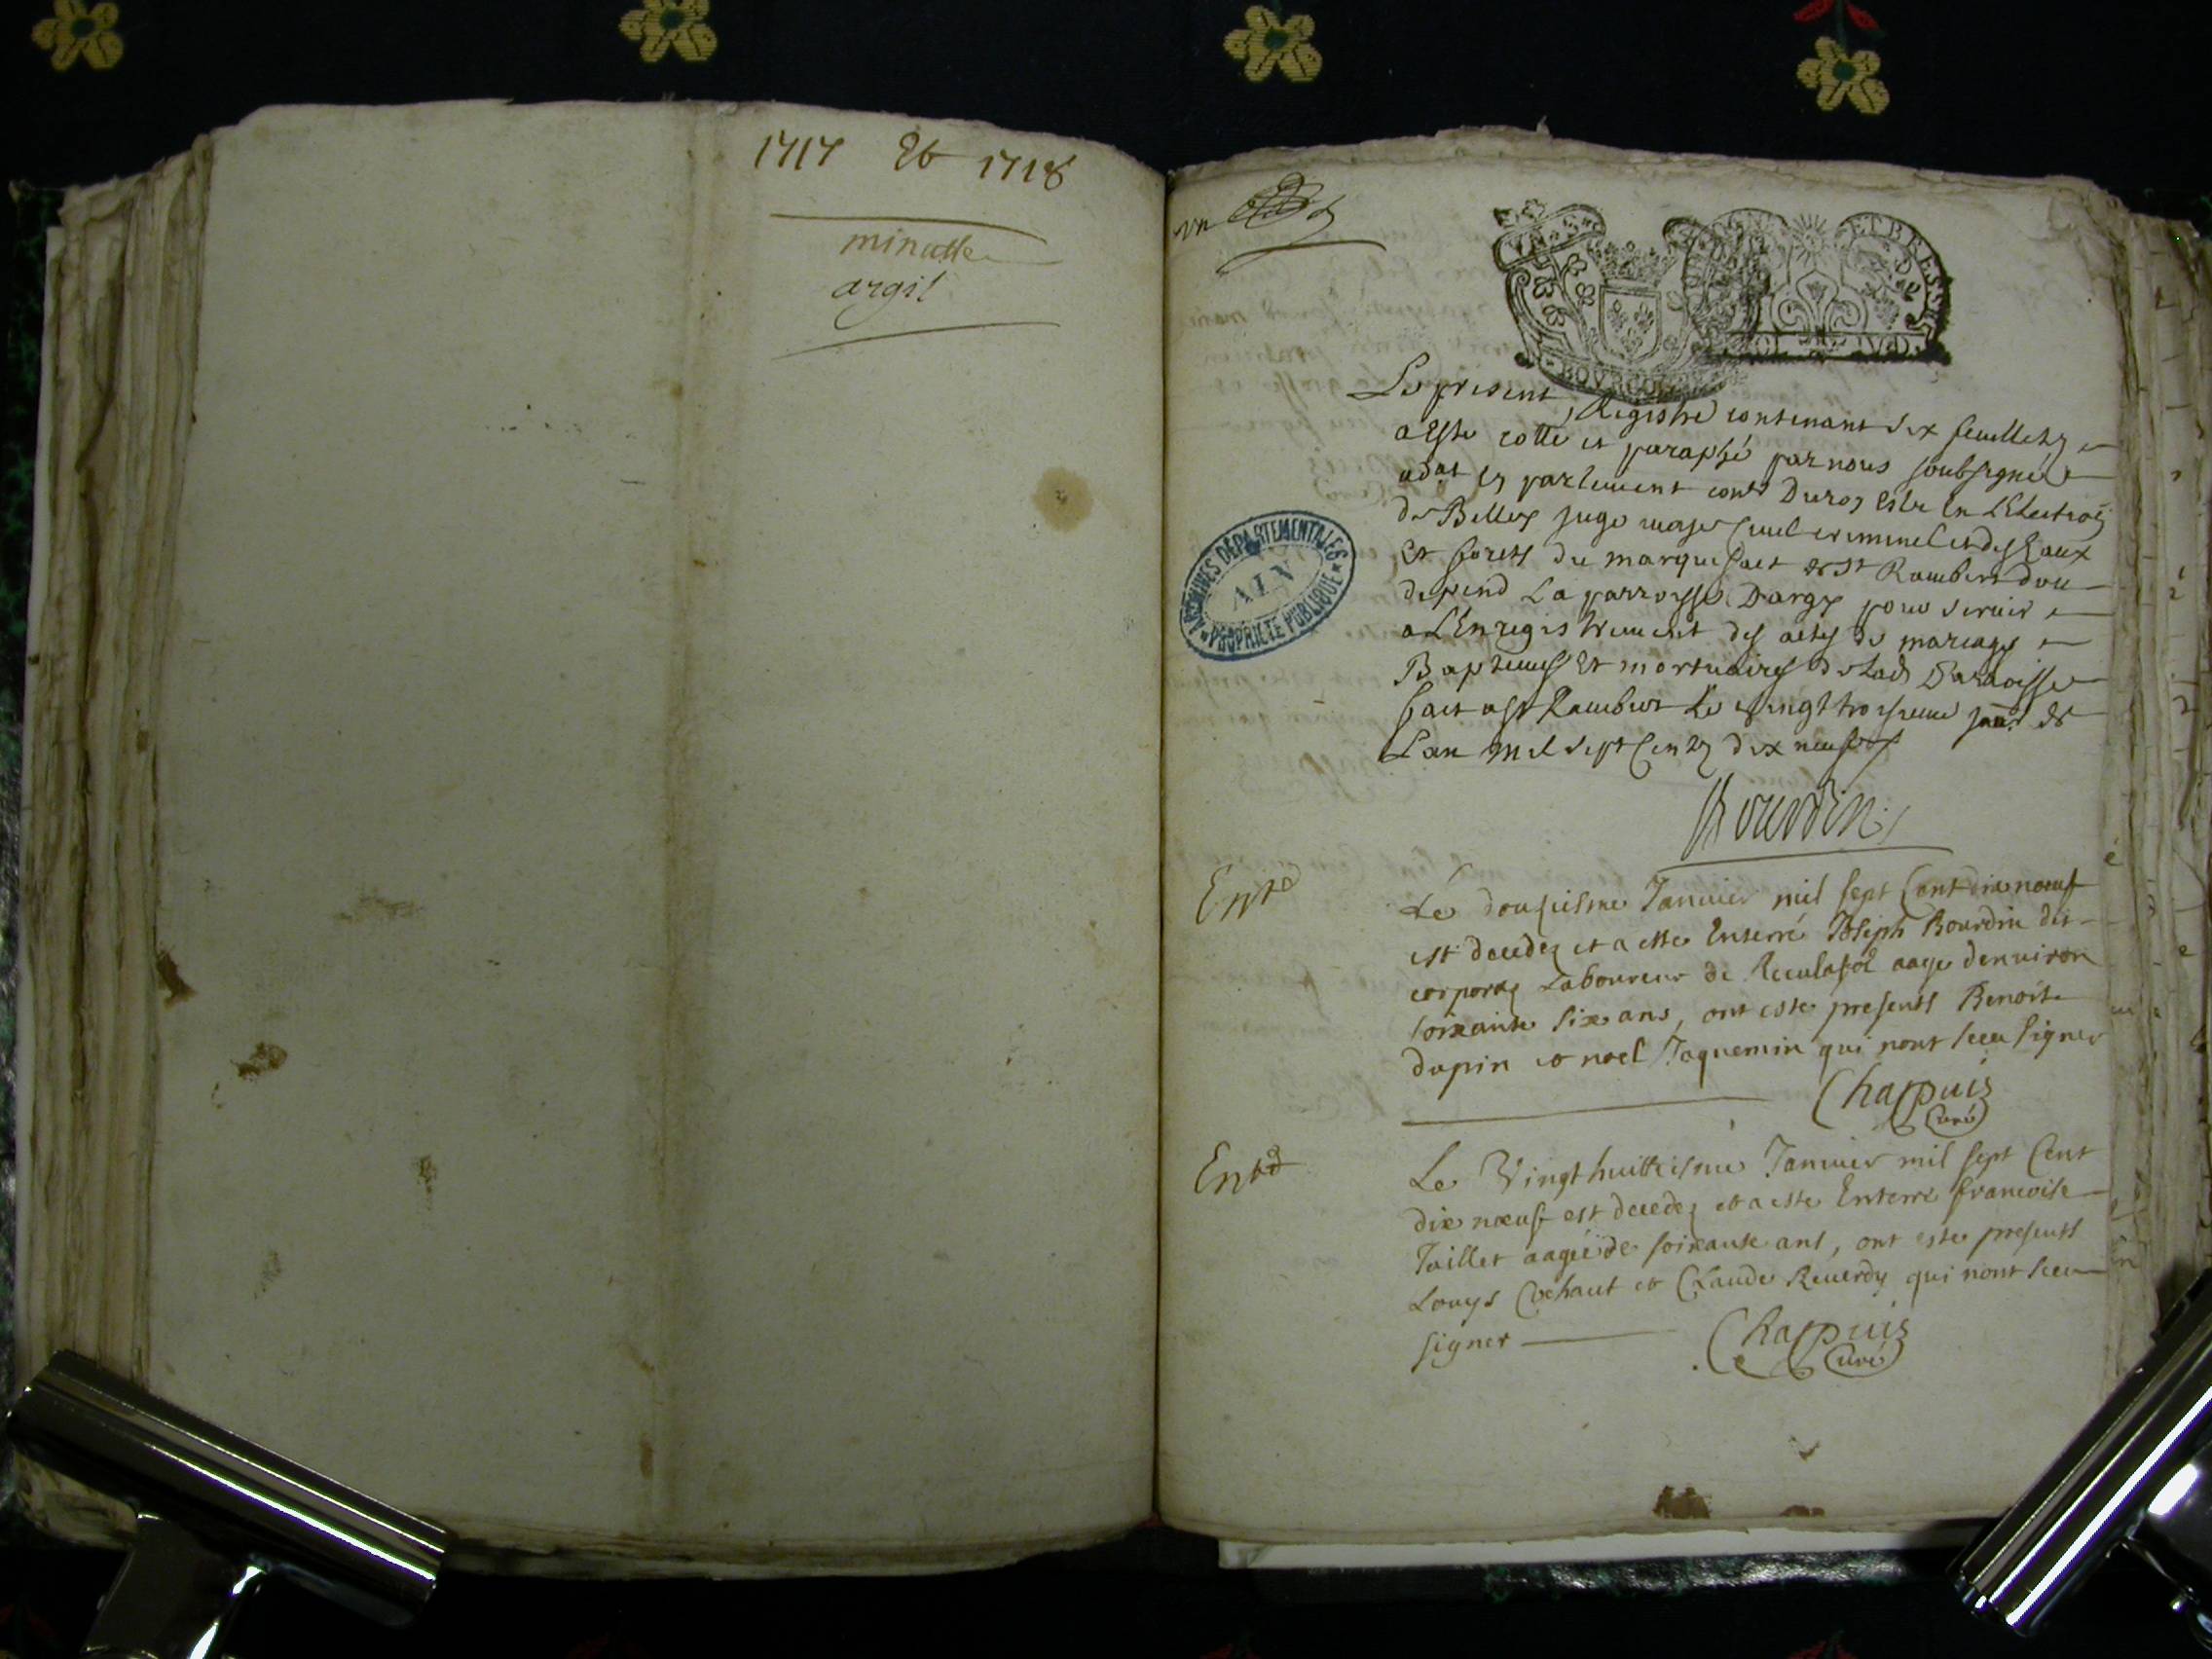 1717 Et 1718
minutte
argil
vn
ET BRESSE
BOVRGOG
ARCHIVES DEPARTEMENTALES
AIN
PROPRIETE PUBLIQUE
Le present Registre contenant six feuilletz
a Esté cotté et paraphé par nous soubsigné
adat en parlement con.er Du roy Eslu En L'Election
de Belley juge maje Civil criminel et des Eaux
Et forets du marquisat de St Rambert dou
depend La parroisse Dargis pour servir
a L'Enregistrement des actes de mariages
Baptemes Et mortuaires de Lad Parroisse
fait a St Rambert Le vingt troisieme janr de
Lan mil sept Centz dix neuf
Bourdin
Entd
Le douziesme Janvier mil sept Cent dix nœuf
est decedez et a esté Enterré Joseph Bourdin dit
corporaz Laboureur de Reculafol aage denviron
soixante six ans, ont esté presents Benoit
dupin et noel Jaquemin qui nont sceu signer
Chappuis
Curé
Entd
Le Vingt huittiesme Janvier mil sept Cent
dix nœuf est decedez et a esté Enterré francoise
Taillet aagée de soixante ans, ont esté presents
Louys Cochaut et Claude Reverdy qui nont sceu
signer
Chappuis
Curé